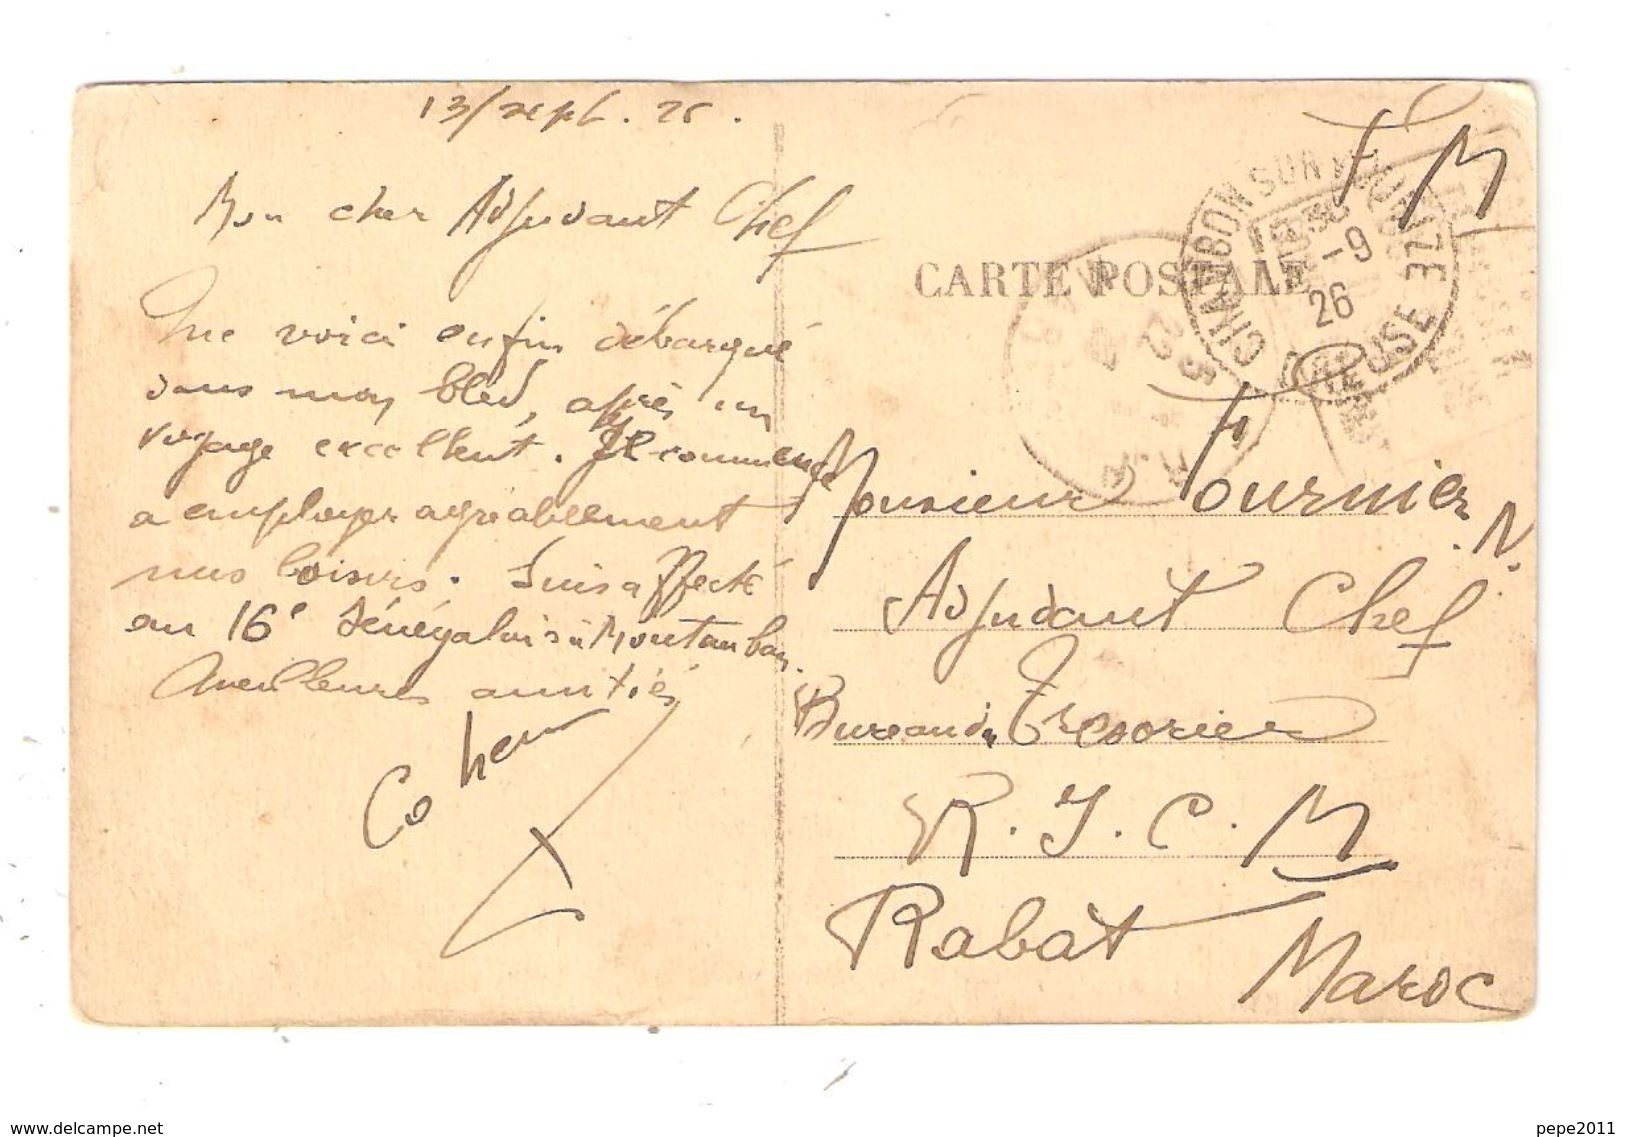 13/sept. 26.
Mon cher Adjudant Chef
Me voici enfin débarqué
dans mon bled, après un
voyage excellent. Je commence
a employer agréablement
mes loisirs. Suis affecté
au 16e Sénégalais à Montauban.
Meilleures amitiés
Cohen
F M
CARTE POSTALE
GIRAUMONT
-9
26
MEUSE
Monsieur Fournier N.
Adjudant Chef
Bureau du Trésorier
R. I. C. M
Rabat
Maroc
www.delcampe.net
pepe2011